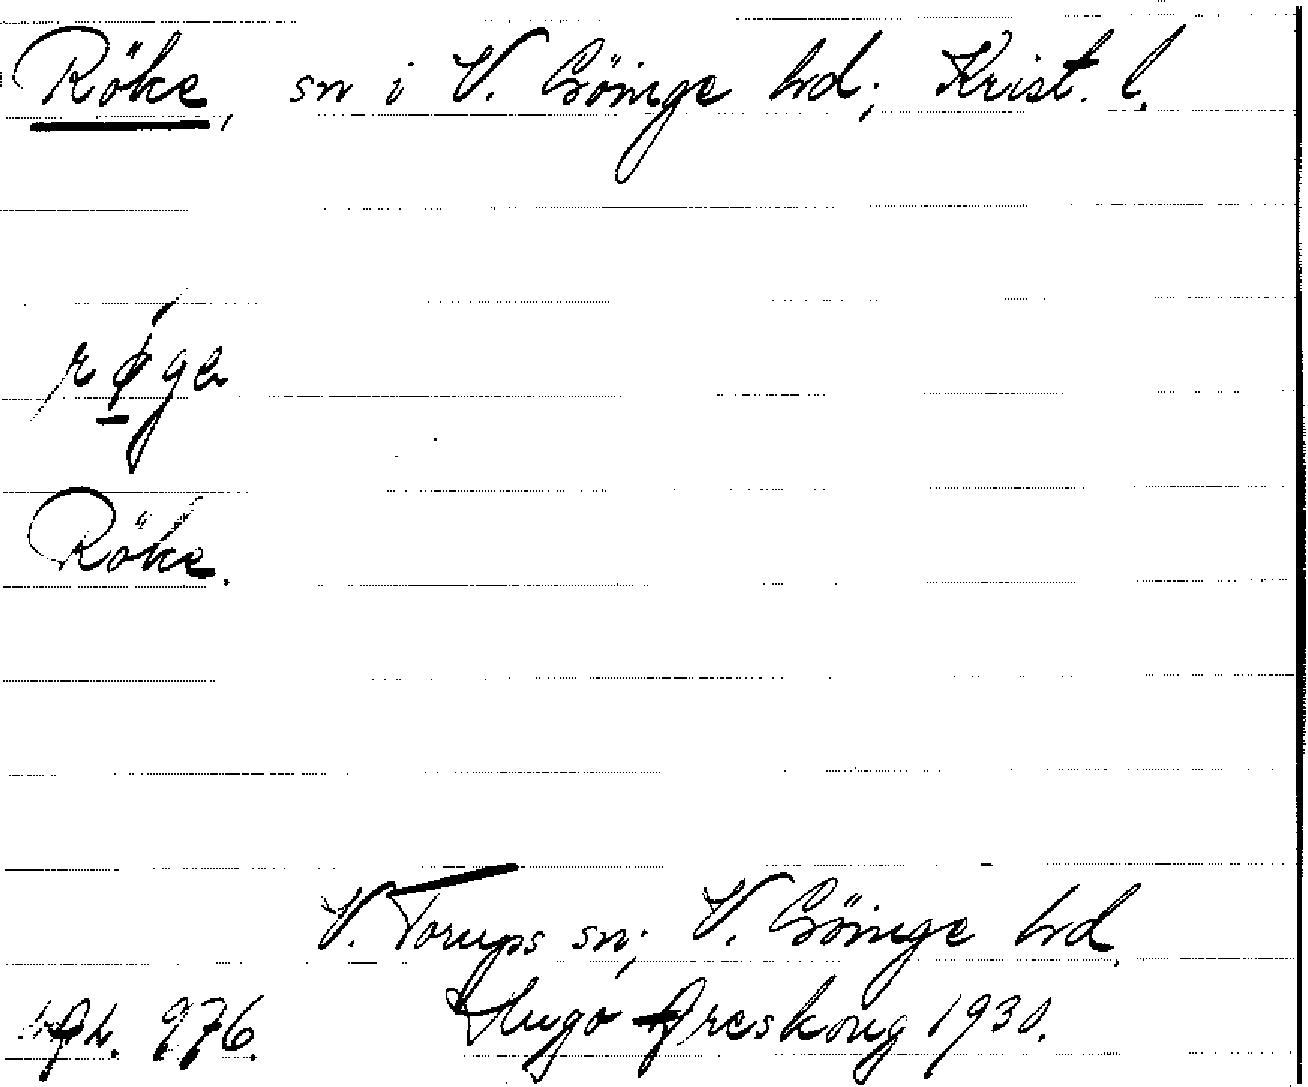 Röke, sn i V. Göinge hd; Krist. l.
Röke.
V. Torups sn; V. Göinge hd.
976. Hugo Areskoug 1930.